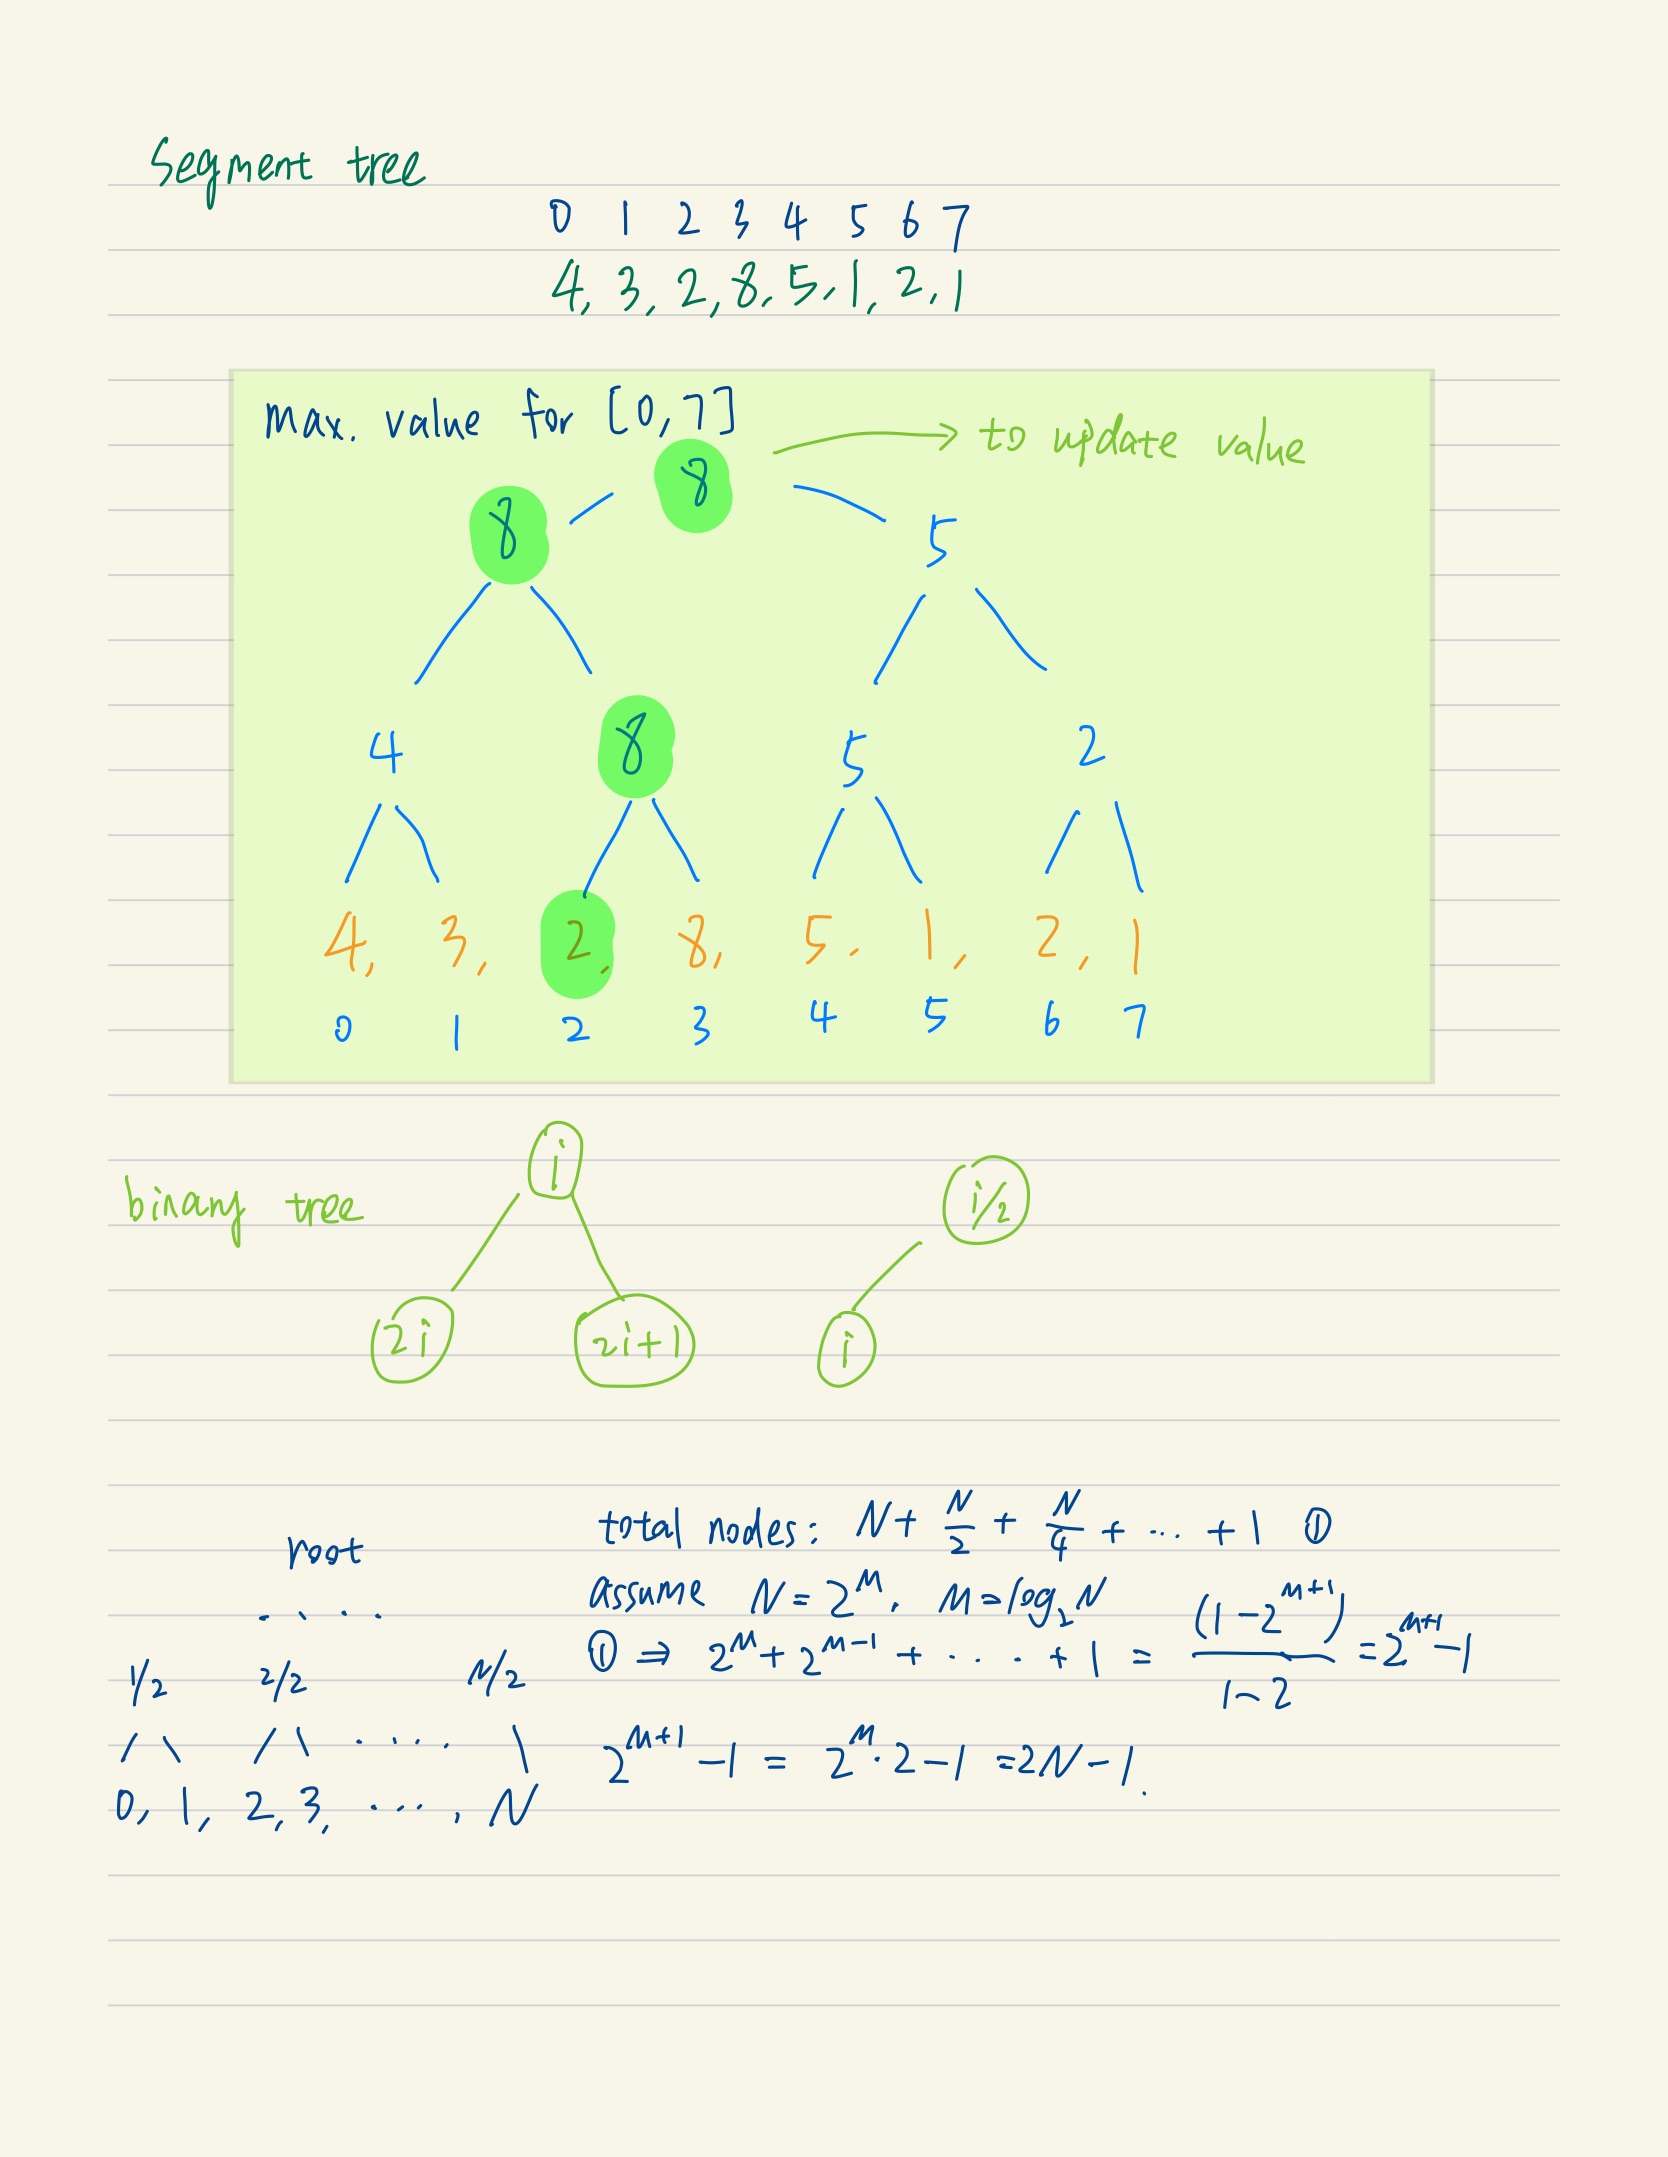 Segment tree
0 1 2 3 4 5 6 7
4, 3, 2, 8, 5, 1, 2, 1
max. value for [0,7]
→ to update value
8
8
5
4 8 5 2
4, 3, 2, 8, 5, 1, 2, 1
0 1 2 3 4 5 6 7
binary tree
i
i/2
2i 2i+1 i
total nodes: N + N/2 + N/4 + ... + 1 ①
root
assume N = 2^M, M = log₂N
....
① ⇒ 2^M + 2^(M-1) + .... + 1 = (1-2^(M+1)) / (1-2) = 2^(M+1) - 1
1/2 2/2 N/2
2^(M+1) - 1 = 2^M · 2 - 1 = 2N - 1.
0, 1, 2, 3, ...., N